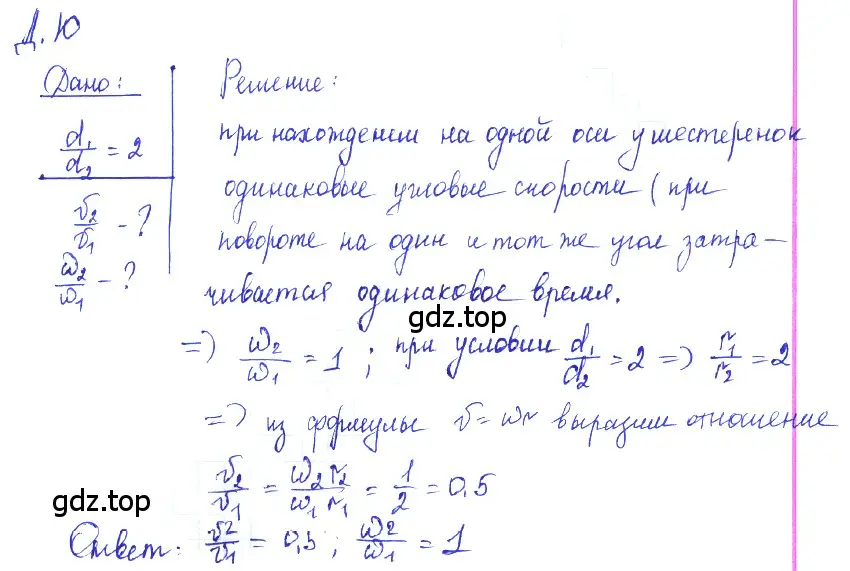 Д. Ю
Дано:
d₁/d₂ = 2
v₂/v₁ - ?
ω₂/ω₁ - ?
Решение:
при нахождении на одной оси у шестеренок
одинаковые угловые скорости (при
повороте на один и тот же угол затра-
чивается одинаковое время.
gdz.top
=> ω₂/ω₁ = 1 ; при условии d₁/d₂ = 2 => r₁/r₂ = 2
=> из формулы v = ωr выразим отношение
v₂/v₁ = ω₂ r₂/ω₁ r₁ = 1/2 = 0,5
gdz.top
Ответ: v₂/v₁ = 0,5 ; ω₂/ω₁ = 1